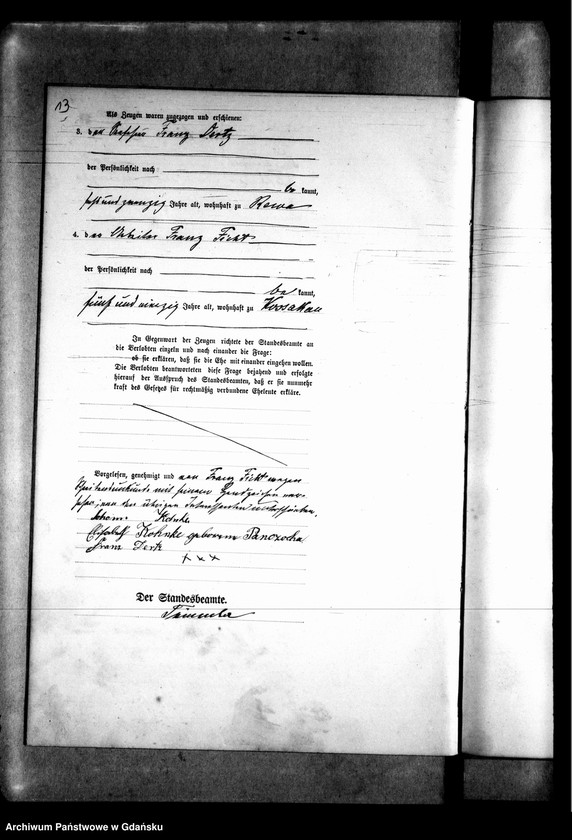 13
Als Zeugen waren zugezogen und erschienen:
3. der Franz
der Persönlichkeit nach
be kannt,
sechs und zwanzig Jahre alt, wohnhaft zu Rewa
4. der Arbeiter Franz Ficht
der Persönlichkeit nach
be kannt,
fünf und vierzig Jahre alt, wohnhaft zu Kossakau
In Gegenwart der Zeugen richtete der Standesbeamte an
die Verlobten einzeln und nach einander die Frage:
ob sie erklären, daß sie die Ehe mit einander eingehen wollen.
Die Verlobten beantworteten diese Frage bejahend und erfolgte
hierauf der Ausspruch des Standesbeamten, daß er sie nunmehr
kraft des Gesetzes für rechtmäßig verbundene Eheleute erkläre.
Vorgelesen, genehmigt und von Franz Ficht wegen
Schreibensunkunde mit seinem Handzeichen ver-
sehen, von den übrigen unterschrieben.
Kohnke
Elisabeth Kohnke geborene Panozocha
Franz
+ x x
Der Standesbeamte.